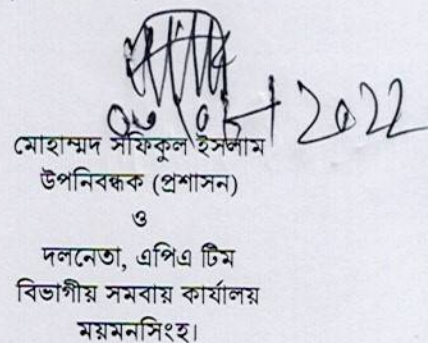 2022
মোহাম্মদ সফিকুল ইসলাম
উপনিবন্ধক (প্রশাসন)
ও
দলনেতা, এপিএ টিম
বিভাগীয় সমবায় কার্যালয়
ময়মনসিংহ।